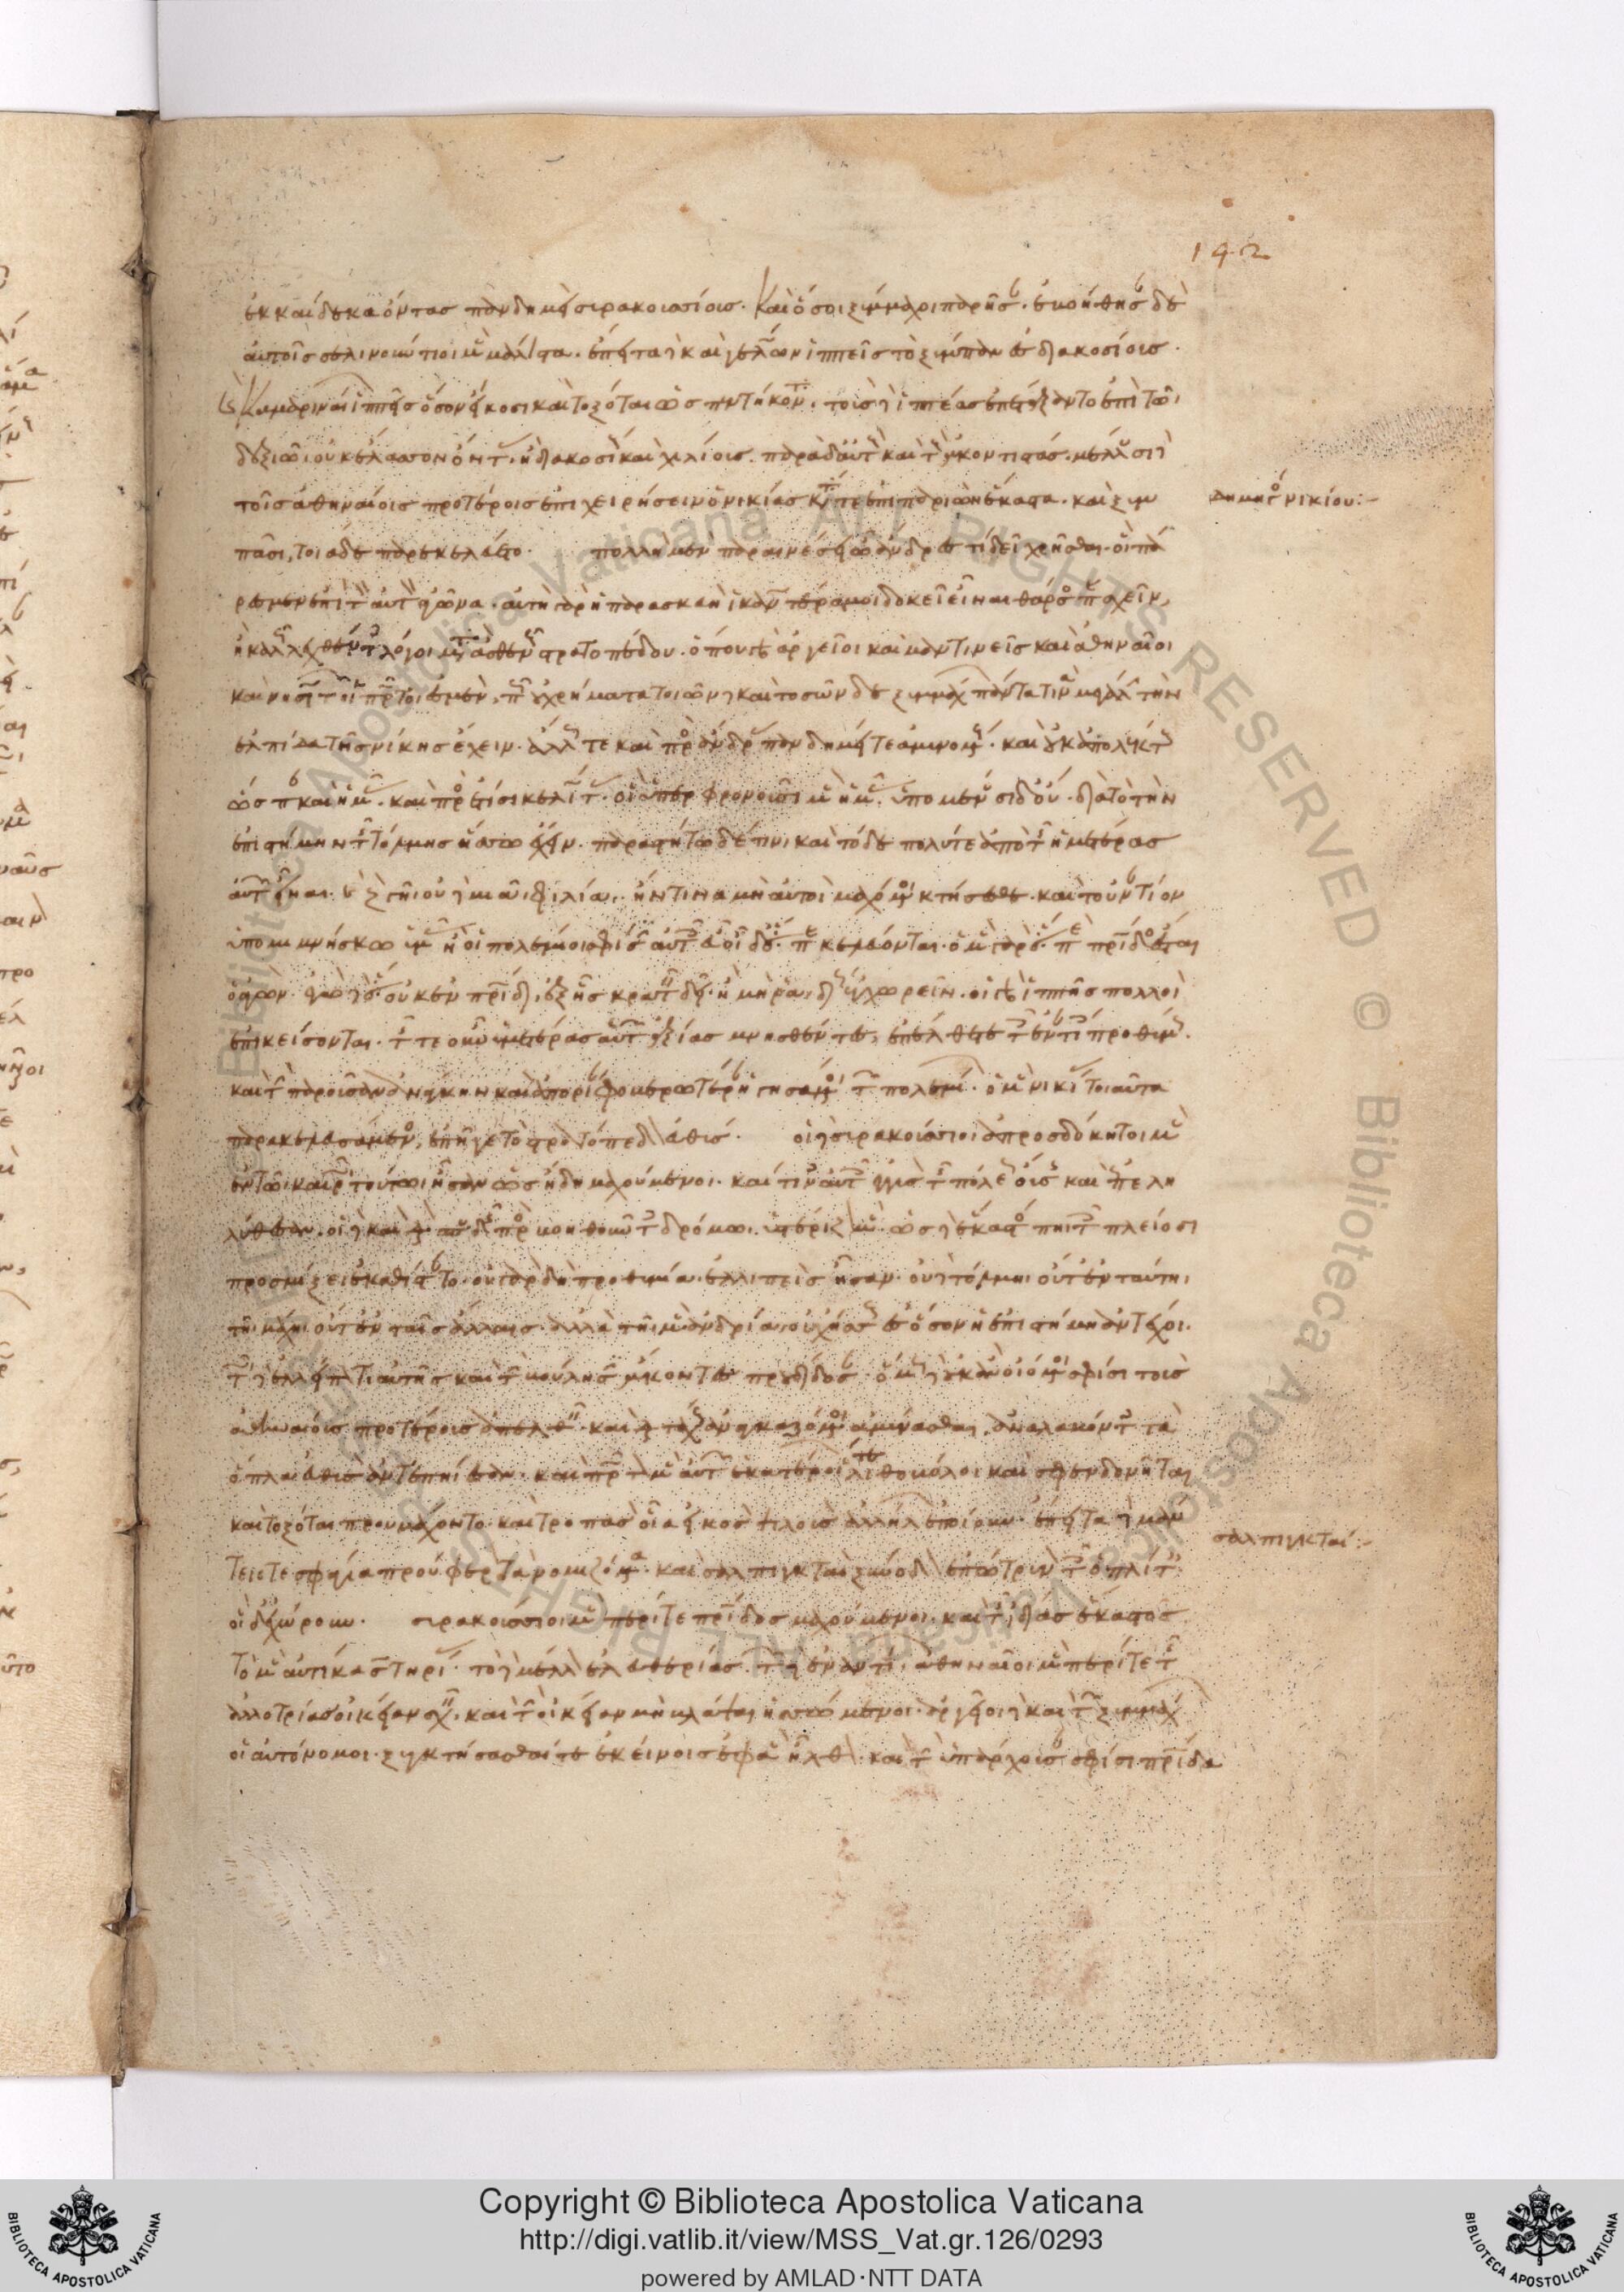 142
ἑκκαίδεκα ὄντας πανδημεὶ συρακουσίους. καὶ ὅσοι ξύμμαχοι παρῆσαν. ἐβοήθησαν δὲ
αὐτοῖς σελινούντιοι μὲν μάλιστα. ἔπειτα δὲ καὶ γελώων ἱππεῖς τὸ ξύμπαν ἐς διακοσίους.
καὶ καμαριναίων ἱππεῖς ὅσον εἴκοσι καὶ τοξόται ὡς πεντήκοντα. τοὺς δὲ ἱππέας ἐπετάξαντο ἐπὶ τῷ
δεξιῷ οὐκ ἔλασσον ὄντας ἢ διακοσίους καὶ χιλίους. παρὰ δ' αὐτοὺς καὶ τοὺς ἀκοντιστάς. μέλλουσι δὲ
τοῖς ἀθηναίοις προτέροις ἐπιχειρήσειν ὁ νικίας κατά τε ἔθνη ἐπιπαριὼν ἕκαστα. καὶ ξύμ
δημηγορία νικίου:-
πασι, τοιάδε παρεκελεύετο. πολλῇ μὲν παραινέσει ὦ ἄνδρες τί δεῖ χρῆσθαι. οἳ πά
ρεσμεν ἐπὶ τὸν αὐτὸν ἀγῶνα. αὐτὴ γὰρ ἡ παρασκευὴ ἱκανωτέρα μοι δοκεῖ εἶναι θάρσος παρασχεῖν,
ἢ καλῶς λεχθέντες λόγοι μετὰ ἀσθενοῦς στρατοπέδου. ὅπου γὰρ ἀργεῖοι καὶ μαντινεῖς καὶ ἀθηναῖοι
καὶ νησιωτῶν οἱ πρῶτοί ἐσμεν, πῶς οὐ χρὴ μετὰ τοιῶνδε καὶ τοσῶνδε ξυμμάχων πάντα τινὰ μεγάλην τὴν
ἐλπίδα τῆς νίκης ἔχειν. ἄλλως τε καὶ πρὸς ἄνδρας πανδημεί τε ἀμυνομένους. καὶ οὐκ ἀπολέκτους
ὥσπερ καὶ ἡμᾶς. καὶ προσέτι σικελιώτας. οἳ ὑπερφρονοῦσι μὲν ἡμᾶς. ὑπομένουσι δ' οὔ. διὰ τὸ τὴν
ἐπιστήμην τῆς τόλμης ἥσσω ἔχειν. παραστήτω δέ τινι καὶ τόδε πολύ τε ἀπὸ τῆς ἡμετέρας
αὐτῶν εἶναι. καὶ πρὸς γῇ οὐδεμιᾷ φιλίᾳ. ἥντινα μὴ αὐτοὶ μαχόμενοι κτήσεσθε. καὶ τοὐναντίον
ὑπομιμνήσκω ὑμᾶς ἢ οἱ πολέμιοι σφίσιν αὐτοῖς εὖ οἶδ' ὅτι παρακελεύονται. οἱ μὲν γὰρ ὅτι περὶ πατρίδος ἔσται
ὁ ἀγών. ἐγὼ δὲ ὅτι οὐκ ἐν πατρίδι. ἐξ ἧς κρατεῖν δεῖ. ἢ μὴ ῥᾳδίως ἀποχωρεῖν. οἱ γὰρ ἱππῆς πολλοὶ
ἐπικείσονται. τῆς τε οὖν ὑμετέρας αὐτῶν ἀξίας μνησθέντες, ἐπέλθετε τοῖς ἐναντίοις προθύμως.
καὶ τὴν παροῦσαν ἀνάγκην καὶ ἀπορίαν φοβερωτέραν ἡγησάμενοι τῶν πολεμίων. ὁ μὲν νικίας τοιαῦτα
παρακελευσάμενος, ἐπῆγε τὸ στρατόπεδον εὐθύς. οἱ δὲ συρακούσιοι ἀπροσδόκητοι μὲν
ἐν τῷ καιρῷ τούτῳ ἦσαν ὡς ἤδη μαχούμενοι. καί τινες αὐτοῖς ἐγγὺς τῆς πόλεως οὔσης καὶ ἀπελη
λύθεσαν. οἱ δὲ καὶ διὰ σπουδῆς προσβοηθοῦντες δρόμῳ. ὑστέριζον μὲν. ὡς δὲ ἕκαστός πῃ τοῖς πλείοσι
προσμίξειε καθίσταντο. οὐ γὰρ δὴ προθυμίᾳ ἐλλιπεῖς ἦσαν. οὐδὲ τόλμῃ οὔτ' ἐν ταύτῃ
τῇ μάχῃ οὔτ' ἐν ταῖς ἄλλαις. ἀλλὰ τῇ μὲν ἀνδρίᾳ οὐχ ἥσσους ἐς ὅσον ἡ ἐπιστήμη ἀντέχοι.
τῷ δὲ ἐλλείποντι αὐτῆς καὶ τὴν βούλησιν ἄκοντες προυδίδοσαν. ὅμως δὲ οὐκ ἂν οἰόμενοι σφίσι τοὺς
ἀθηναίους προτέρους ἐπελθεῖν. καὶ διὰ τάχους ἀναγκαζόμενοι ἀμύνασθαι, ἀναλαβόντες τὰ
ὅπλα εὐθὺς ἀντεπῄεσαν. καὶ πρῶτον μὲν αὐτῶν ἑκατέρων οἵ τε λιθοβόλοι καὶ σφενδονῆται
καὶ τοξόται προυμάχοντο. καὶ τροπὰς οἵας εἰκὸς ψιλοὺς ἀλλήλων ἐποίουν. ἔπειτα δὲ μάν
σαλπιγκταί:-
τεις τε σφάγια προύφερον τὰ νομιζόμενα. καὶ σαλπιγκταὶ ξύνοδον ἐπώτρυνον τοῖς ὁπλίταις
οἱ δ' ἐχώρουν. συρακούσιοι μὲν περί τε πατρίδος μαχούμενοι. καὶ τῆς ἰδίας ἕκαστος
τὸ μὲν αὐτίκα σωτηρίας. τὸ δὲ μέλλον ἐλευθερίας. τῶν δ' ἐναντίων ἀθηναῖοι μὲν περί τε τῆς
ἀλλοτρίας οἰκείαν σχεῖν. καὶ τὴν οἰκείαν μὴ βλάψαι ἡσσώμενοι. ἀργεῖοι δὲ καὶ τῶν ξυμμάχων
οἱ αὐτόνομοι. ξυγκτήσασθαί τε ἐκείνοις ἐφ' ἃ ἦλθον. καὶ τὴν ὑπάρχουσαν σφίσι πατρίδα
Copyright © Biblioteca Apostolica Vaticana
http://digi.vatlib.it/view/MSS_Vat.gr.126/0293
powered by AMLAD·NTT DATA